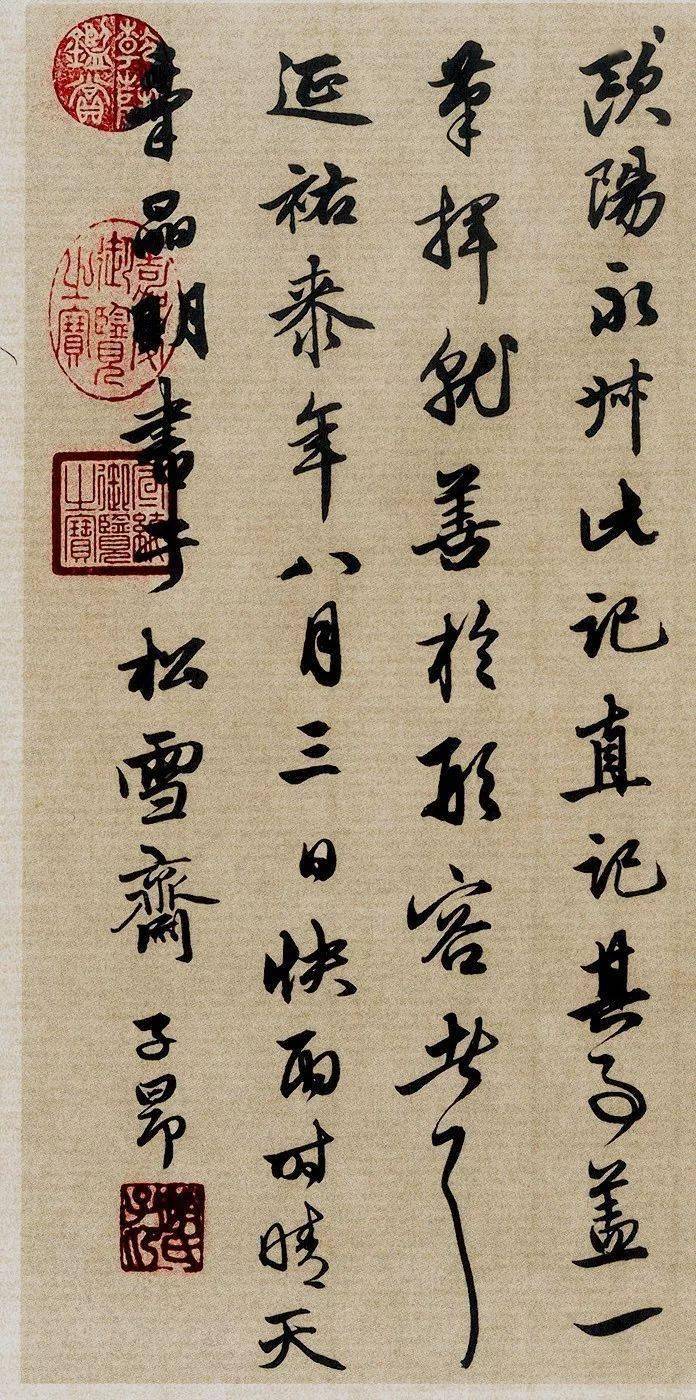 歐陽永叔此記直記其事蓋一
筆揮就善於形容者耳
延祐桼年八月三日快雨時晴天
晶明書于松雪齋
子昂
趙氏子印
乾隆鑑賞
嘉慶御覽之寶
宣統御覽之寶